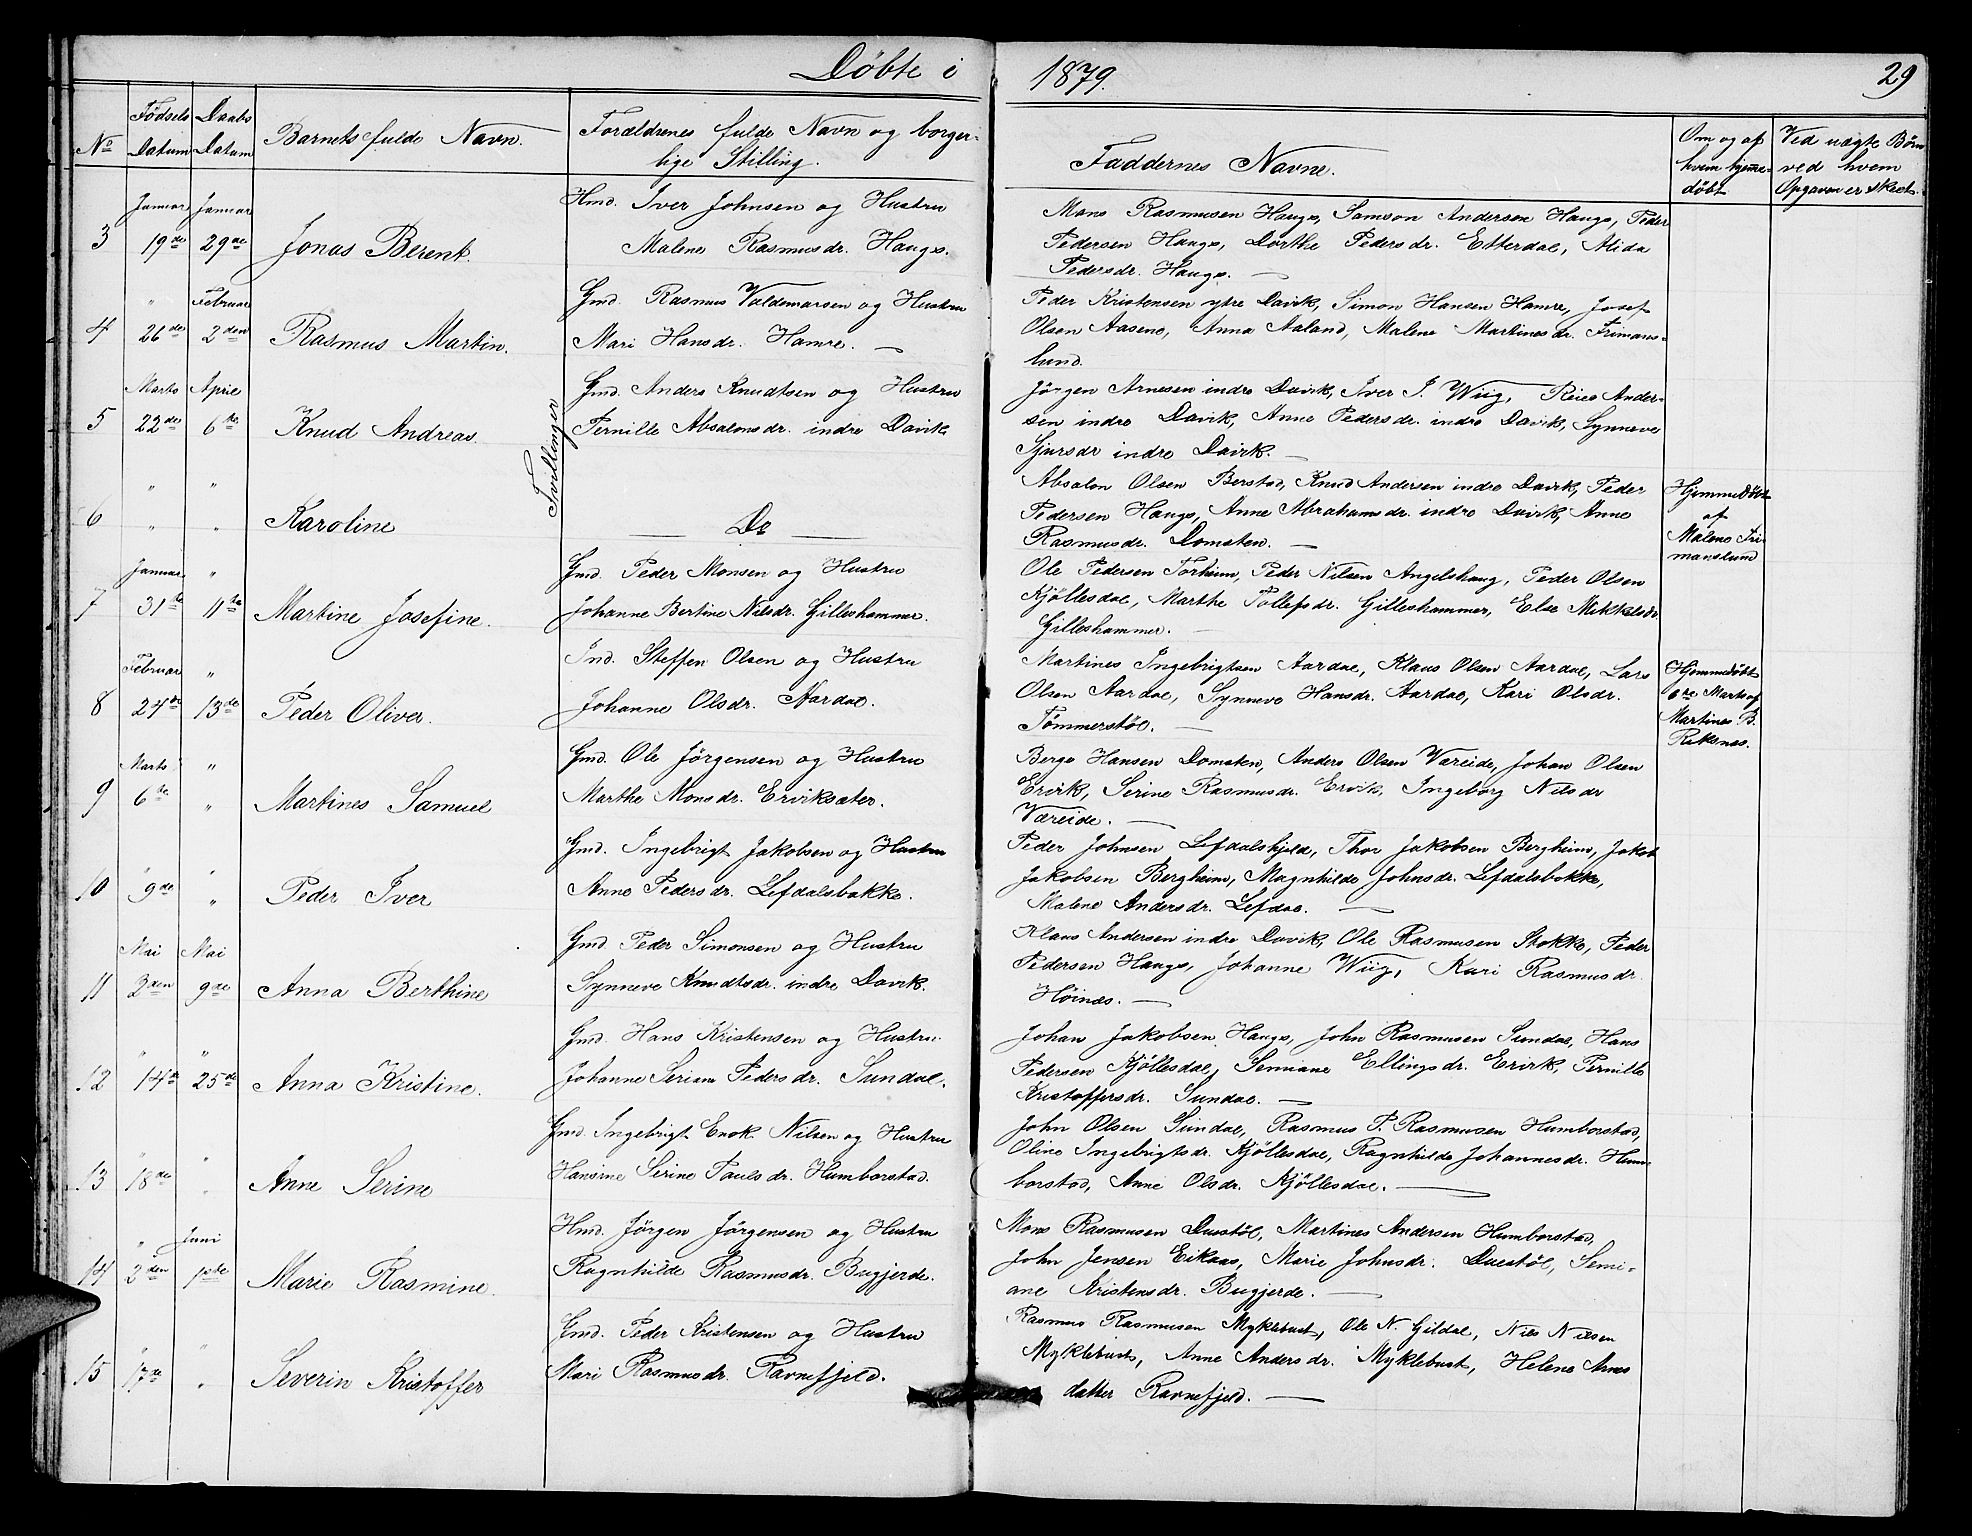 Døbte i 1879. 29
No
Fødsels Datum
Daabs Datum
Barnets fulde Navn.
Forældrenes fulde Navn og borger-
lige Stilling.
Faddernes Navne.
Om og af
hvem hjemme-
døbt
Ved uægte Børn
ved hvem
Opgaven er skeet.
Januar Januar
3 19de 29de Jonas Berent.
Hmd. Iver Johnsen og Hustru
Malene Rasmusdr. Hauge.
Mons Rasmusen Hauge, Samson Andersen Hauge, Peder
Pedersen Hauge, Dorthe Pedersdr. Etterdal, Alida
Pedersdr. Hauge. —
" Februar
4 26de 2den Rasmus Martin.
Gmd. Rasmus Valdemarsen og Hustru
Mari Hansdr. Hamre. —
Peder Kristensen ytre Davik, Simon Hansen Hamre, Josef
Olsen Aasene, Anna Aaland, Malene Martinesdr. Frimans-
lund.
Marts April
5 22de 6te Knud Andreas.
Tvillinger
Gmd. Anders Knudtsen og Hustru
Pernille Absalonsdr. indre Davik
Jörgen Arnesen indre Davik, Iver J. Wiig, Reier Ander-
sen indre Davik, Anne Pedersdr. indre Davik, Synneve
Sjursdr indre Davik. —
" "
6 " " Karoline
— Do —
Absalon Olsen Berstad, Knud Andersen indre Davik, Peder
Pedersen Hauge, Anne Abrahamsdr. indre Davik, Anne
Rasmusdr. Domsten. —
Hjemmedøbt
af
Malene Fri-
manslund
Januar "
7 31te 11te Martine Josefine.
Gmd. Peder Monsen og Hustru
Johanne Bertine Nilsdr. Gilleshammer.
Ole Pedersen Torheim, Peder Nilsen Angelshaug, Peder Olsen
Kjöllesdal, Marthe Tollefsdr. Gilleshammer, Else Mikkelsdr.
Gilleshammer. —
Februar "
8 24de 13de Peder Oliver.
Ind. Steffen Olsen og Hustru
Johanne Olsdr. Aardal.
Martines Ingebrigtsen Aardal, Klaus Olsen Aardal, Lars
Olsen Aardal, Synneve Hansdr. Aardal, Kari Olsdr.
Tömmerstöl. —
Hjemmedøbt
Marts af
Martines B.
Marts "
9 6te " Martines Samuel
Gmd. Ole Jörgensen og Hustru
Marthe Monsdr. Erviksæter.
Berge Hansen Domsten, Anders Olsen Væreide, Johan Olsen
Ervik, Serine Rasmusdr. Ervik, Ingeborg Nilsdr
Væreide. —
10 " 9de " " Peder Iver
Gmd. Ingebrigt Jakobsen og Hustru
Anne Pedersdr. Lefdalsbakke.
Peder Johnsen Lefdalshjeld, Thor Jakobsen Bergheim, Jakob
Jakobsen Bergheim, Magnhilde Johnsdr. Lefdalsbakke,
Malene Andersdr. Lefdal. —
Mai Mai
11 3den 9de Anna Berthine
Gmd. Peder Simonsen og Hustru
Synneve Knudtsdr. indre Davik.
Klaus Andersen indre Davik, Ole Rasmusen Stokke, Peder
Pedersen Hauge, Johanne Wiig, Kari Rasmusdr.
Höinæs. —
" "
12 14de 25de Anna Kristine.
Gmd. Hans Kristensen og Hustru
Johanne Seriane Pedersdr. Sundal.
Johan Jakobsen Hauge, John Rasmusen Sundal, Hans
Pedersen Kjöllesdal, Semiane Ellingsdr. Ervik, Pernille
Kristoffersdr. Sundal. —
" "
13 18de " Anne Serine
Gmd. Ingebrigt Enok Nilsen og Hustru
Hansine Serine Paulsdr. Humborstad.
John Olsen Sundal, Rasmus P. Rasmusen Humborstad,
Oline Ingebrigtsdr. Kjöllesdal, Ragnhilde Johannesdr. Hum-
borstad, Anne Olsdr. Kjöllesdal. —
" Juni
14 2den 1ste Marie Rasmine.
Hmd. Jörgen Jörgensen og Hustru
Ragnhilde Rasmusdr. Bugjerde.
Mons Rasmusen Duestöl, Martines Andersen Humborstad,
John Jensen Eikaas, Marie Johnsdr. Duestöl, Semi-
ane Kristensdr. Bugjerde. —
" "
15 17de " Severin Kristoffer
Gmd. Peder Kristensen og Hustru
Mari Rasmusdr. Ravnefjeld.
Rasmus Rasmusen Myklebust, Ole N. Gildal, Nils Nilsen
Myklebust, Anne Andersdr. Myklebust, Helene Arns
datter Ravnefjeld. —